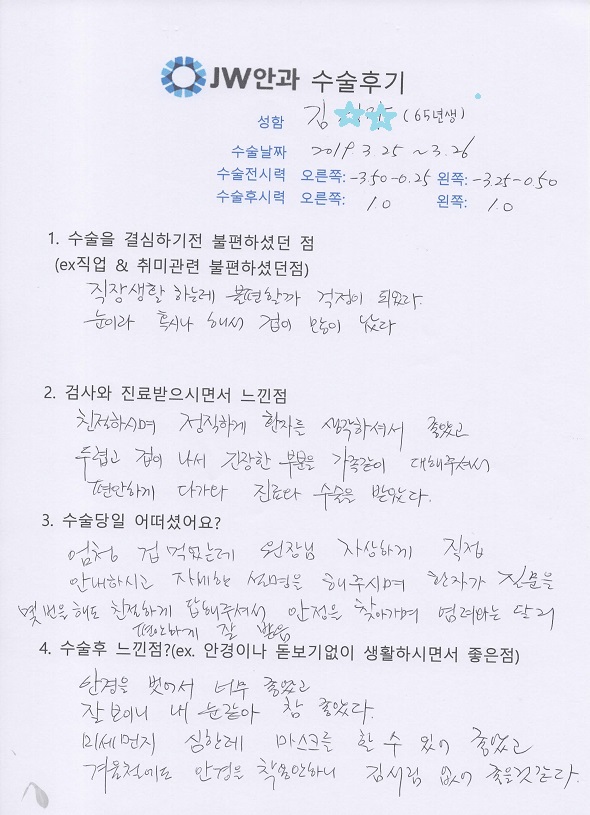 JW안과 수술후기
성함 김 (65년생)
수술날짜 2019.3.25 ~3.26
수술전시력 오른쪽: -3.50-0.25 왼쪽: -3.25-0.50
수술후시력 오른쪽: 1.0 왼쪽: 1.0
1. 수술을 결심하기전 불편하셨던 점
(ex직업 & 취미관련 불편하셨던점)
직장생활 하는데 불편할까 걱정이 되었다.
눈이라 혹시나 해서 겁이 많이 났다
2. 검사와 진료받으시면서 느낀점
친절하시며 정직하게 환자를 생각하셔서 좋았고
두렵고 겁이 나서 긴장한 부분을 가족같이 대해주셔서
편안하게 다가와 진료와 수술을 받았다.
3. 수술당일 어떠셨어요?
엄청 겁먹었는데 원장님 자상하게 직접
안내하시고 자세한 설명을 해주시며 환자가 질문을
몇번을 해도 친절하게 답해주셔서 안정을 찾아가며 염려와는 달리
편안하게 잘 받음
4. 수술후 느낀점?(ex. 안경이나 돋보기없이 생활하시면서 좋은점)
안경을 벗어서 너무 좋았고
잘보이니 내 눈같아 참 좋았다.
미세먼지 심한데 마스크를 할 수 있어 좋았고
겨울철에도 안경을 착용안하니 김서림 없어 좋을것같다.